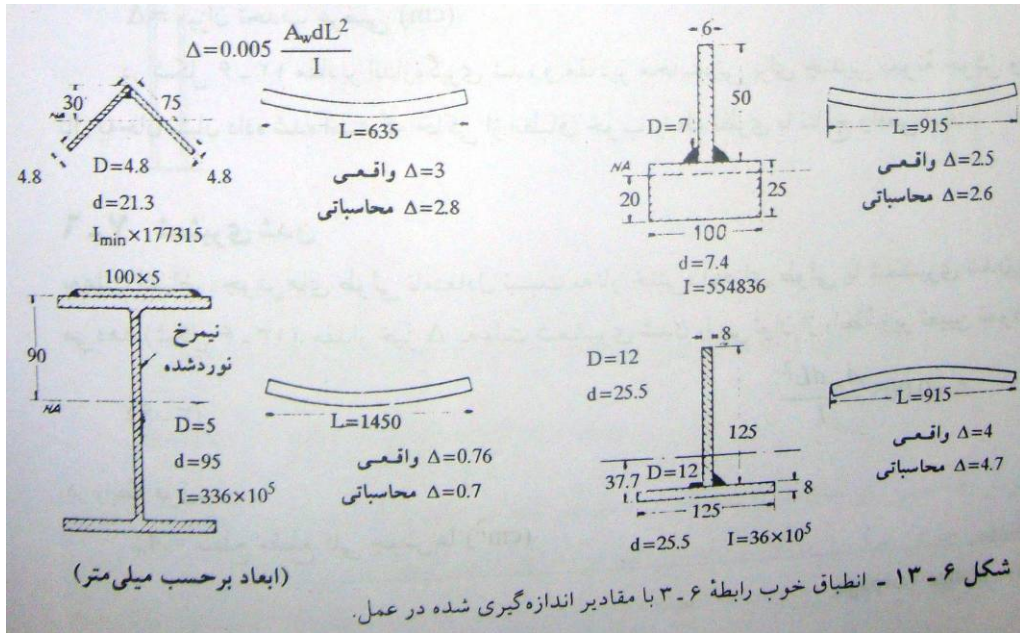 Δ=0.005 A_w dL² / I
30
75
NA
4.8
4.8
D=4.8
d=21.3
I_min×177315
L=635
Δ=3 واقعی
Δ=2.8 محاسباتی
6
50
D=7
NA
20
25
100
d=7.4
I=554836
L=915
Δ=2.5 واقعی
Δ=2.6 محاسباتی
100×5
90
نیمرخ
نوردشده
NA
D=5
d=95
I=336×10⁵
L=1450
Δ=0.76 واقعی
Δ=0.7 محاسباتی
8
D=12
d=25.5
125
37.7
D=12
8
125
d=25.5
I=36×10⁵
L=915
Δ=4 واقعی
Δ=4.7 محاسباتی
(ابعاد برحسب میلی‌متر)
شکل ۶ ـ ۱۳ ـ انطباق خوب رابطهٔ ۶ ـ ۳ با مقادیر اندازه‌گیری شده در عمل.